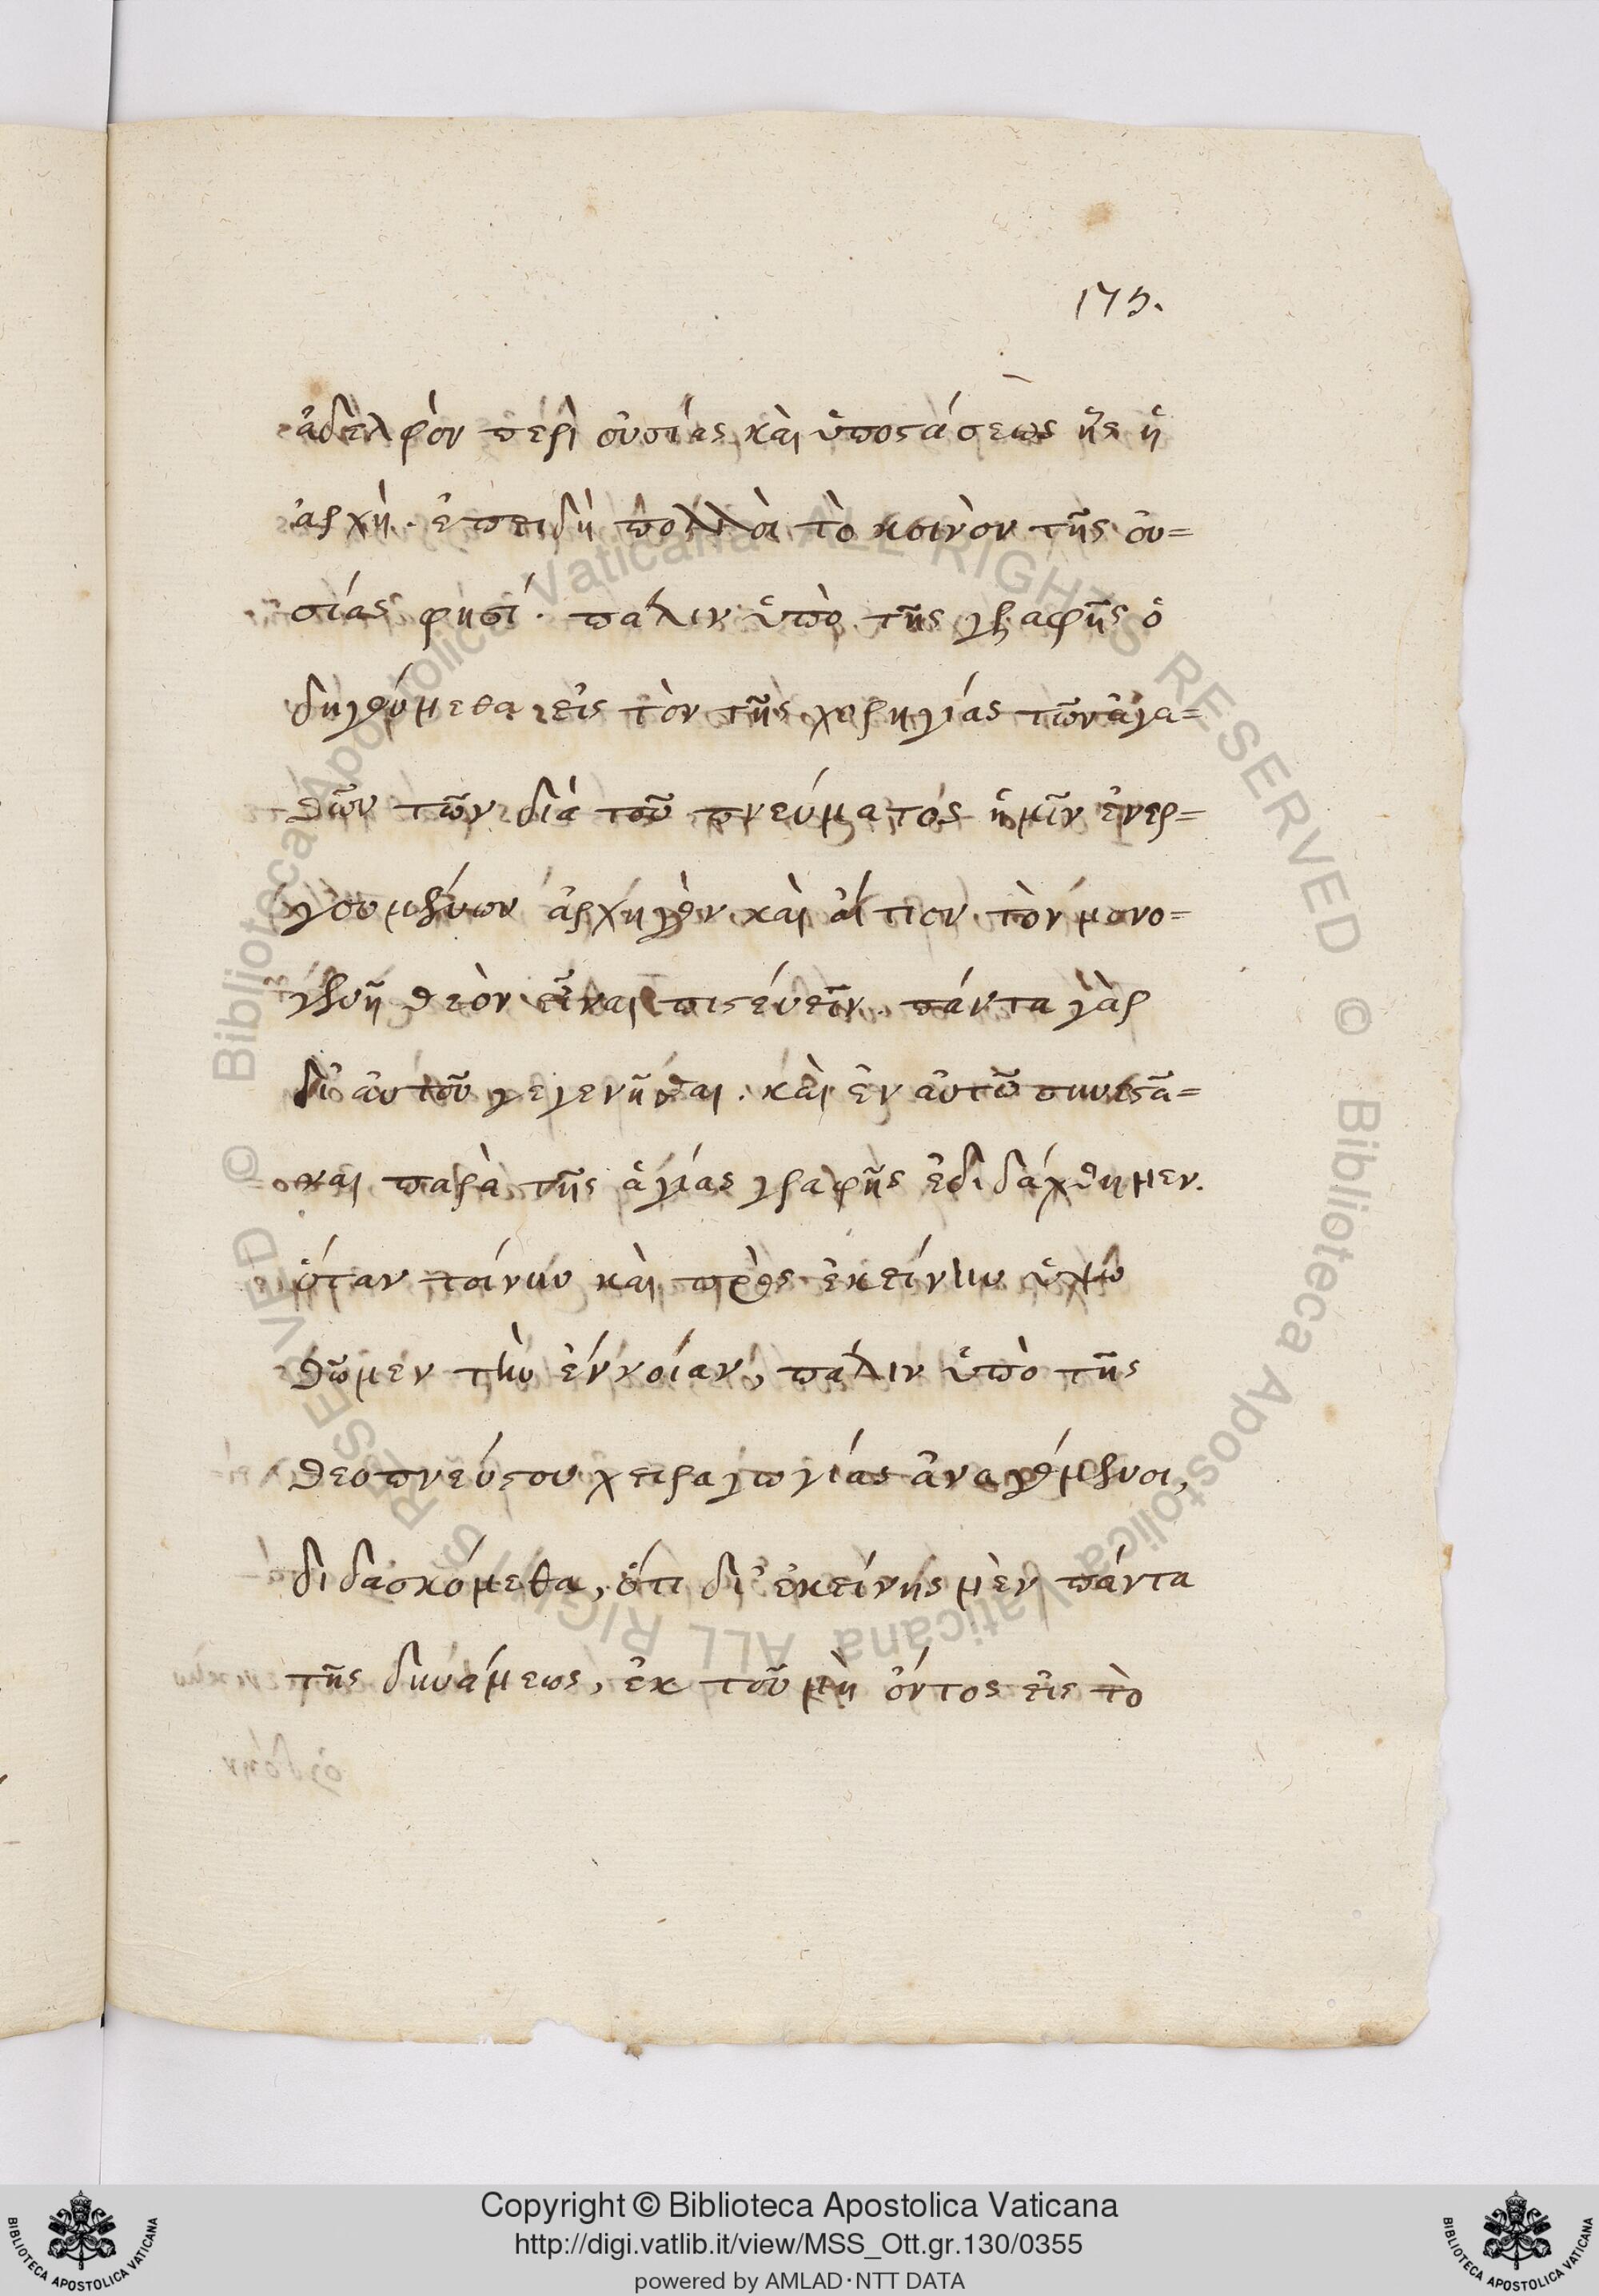 175.
ἀδελφὸν περὶ οὐσίας καὶ ὑποστάσεως ἧς ἡ
ἀρχὴ. ἐπειδὴ πολλοὶ τὸ κοινὸν τῆς οὐ=
σίας φησί. πάλιν ὑπὸ τῆς γραφῆς ὁ
δηγούμεθα εἰς τὸν τῆς χορηγίας τῶν ἀγα=
θῶν τῶν διὰ τοῦ πνεύματός ἡμῖν ἐνερ=
γουμένων ἀρχηγὸν καὶ αἴτιον τὸν μονο=
γενῆ θεὸν εἶναι πιστέυειν. πάντα γὰρ
δι' αὐτοῦ γεγενῆσθαι. καὶ ἐν αὐτῶ συνεστᾶ=
ναι παρὰ τῆς ἁγίας γραφῆς ἐδιδάχθημεν.
ὅταν τοίνυν καὶ πρὸς ἐκείνην ὑψω
θῶμεν τὴν ἔννοίαν, πάλιν ὑπὸ τῆς
θεοπνεύστου χειραγωγίας ἀναγόμενοι,
διδασκόμεθα, ὅτι δι' ἐκείνης μὲν πάντα
τῆς δυνάμεως, ἐκ τοῦ μὴ ὄντος εἰς τὸ
Copyright © Biblioteca Apostolica Vaticana
http://digi.vatlib.it/view/MSS_Ott.gr.130/0355
powered by AMLAD·NTT DATA
BIBLIOTECA APOSTOLICA VATICANA
BIBLIOTECA APOSTOLICA VATICANA
© Biblioteca Apostolica Vaticana ALL RIGHTS RESERVED © Biblioteca Apostolica Vaticana ALL RIGHTS RESERVED